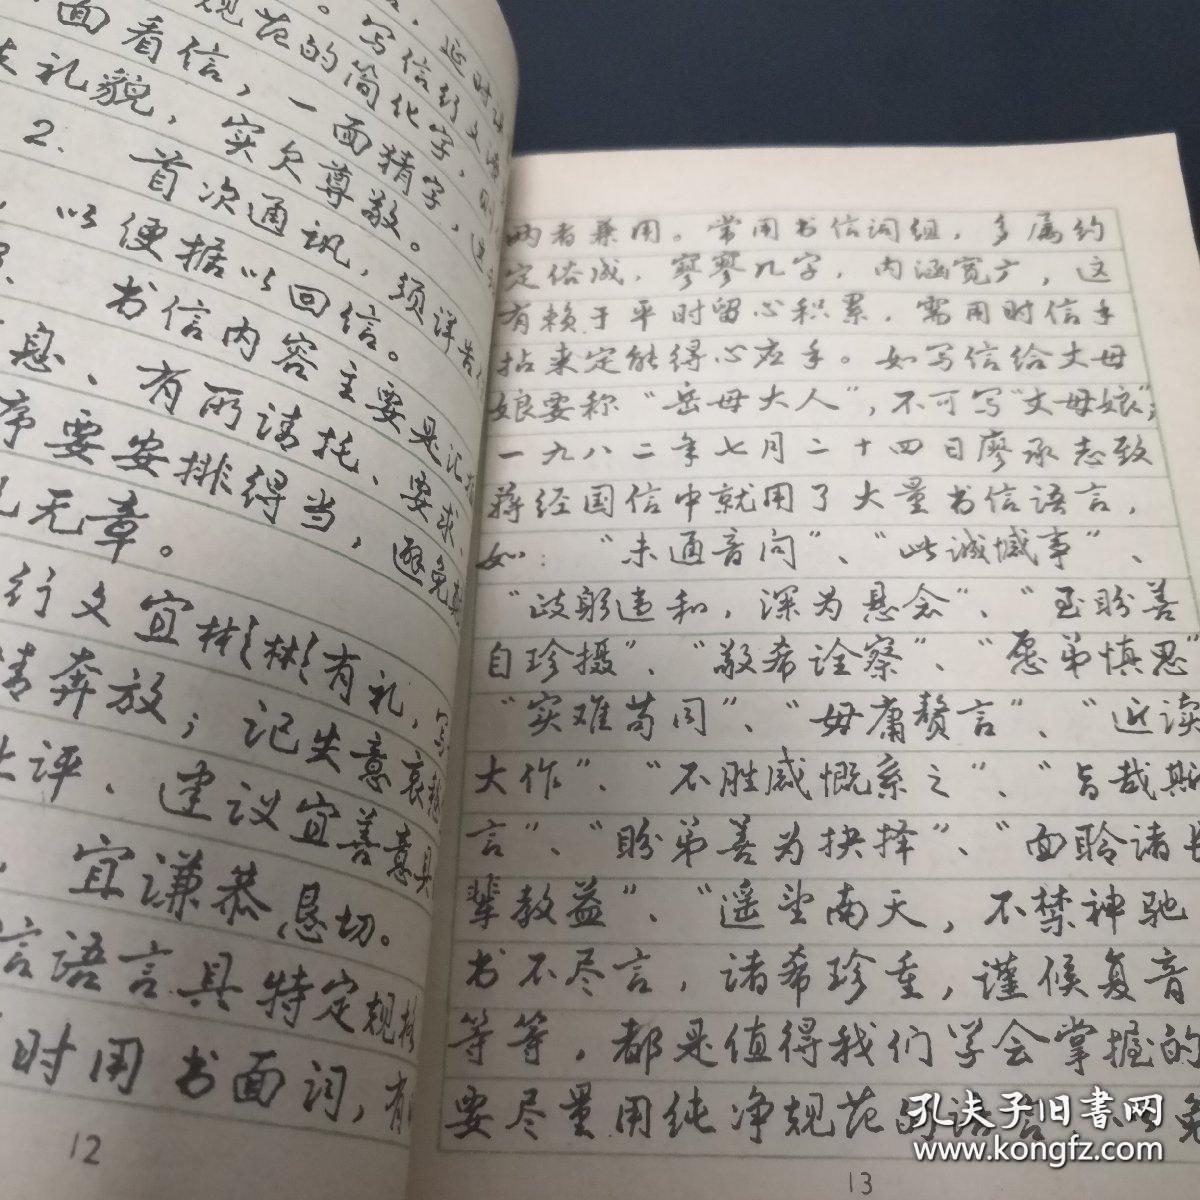 延时
规范的简化字,
写信行文
面看信,一面猜字,
礼貌,实欠尊敬。
2. 首次通讯,须详告
,以便据以回信。
书信内容主要是汇
息、有所请托、要求、
序要安排得当,避免
无章。
行文宜彬彬有礼,
情奔放;记失意哀
评、建议宜善意具
,宜谦恭恳切。
言语言具特定规格
时用书面词,有
12
两者兼用。常用书信词组,多属约
定俗成,寥寥几字,内涵宽广,这
有赖于平时留心积累,需用时信手
拈来定能得心应手。如写信给丈母
娘要称“岳母大人”,不可写“丈母娘”;
一九八二年七月二十四日廖承志致
蒋经国信中就用了大量书信语言,
如:“未通音问”、“此诚憾事”、
“政躬违和,深为悬念”、“至盼善
自珍摄”、“敬希诠察”、“愿弟慎思”
“实难苟同”、“毋庸赘言”、“近读
大作”、“不胜感慨系之”、“旨哉斯
言”、“盼弟善为抉择”、“面聆诸长
辈教益”、“遥望南天,不禁神驰
书不尽言,诸希珍重,谨候复音
等等,都是值得我们学会掌握的
要尽量用纯净规范的语言
13
孔夫子旧书网
www.kongfz.com